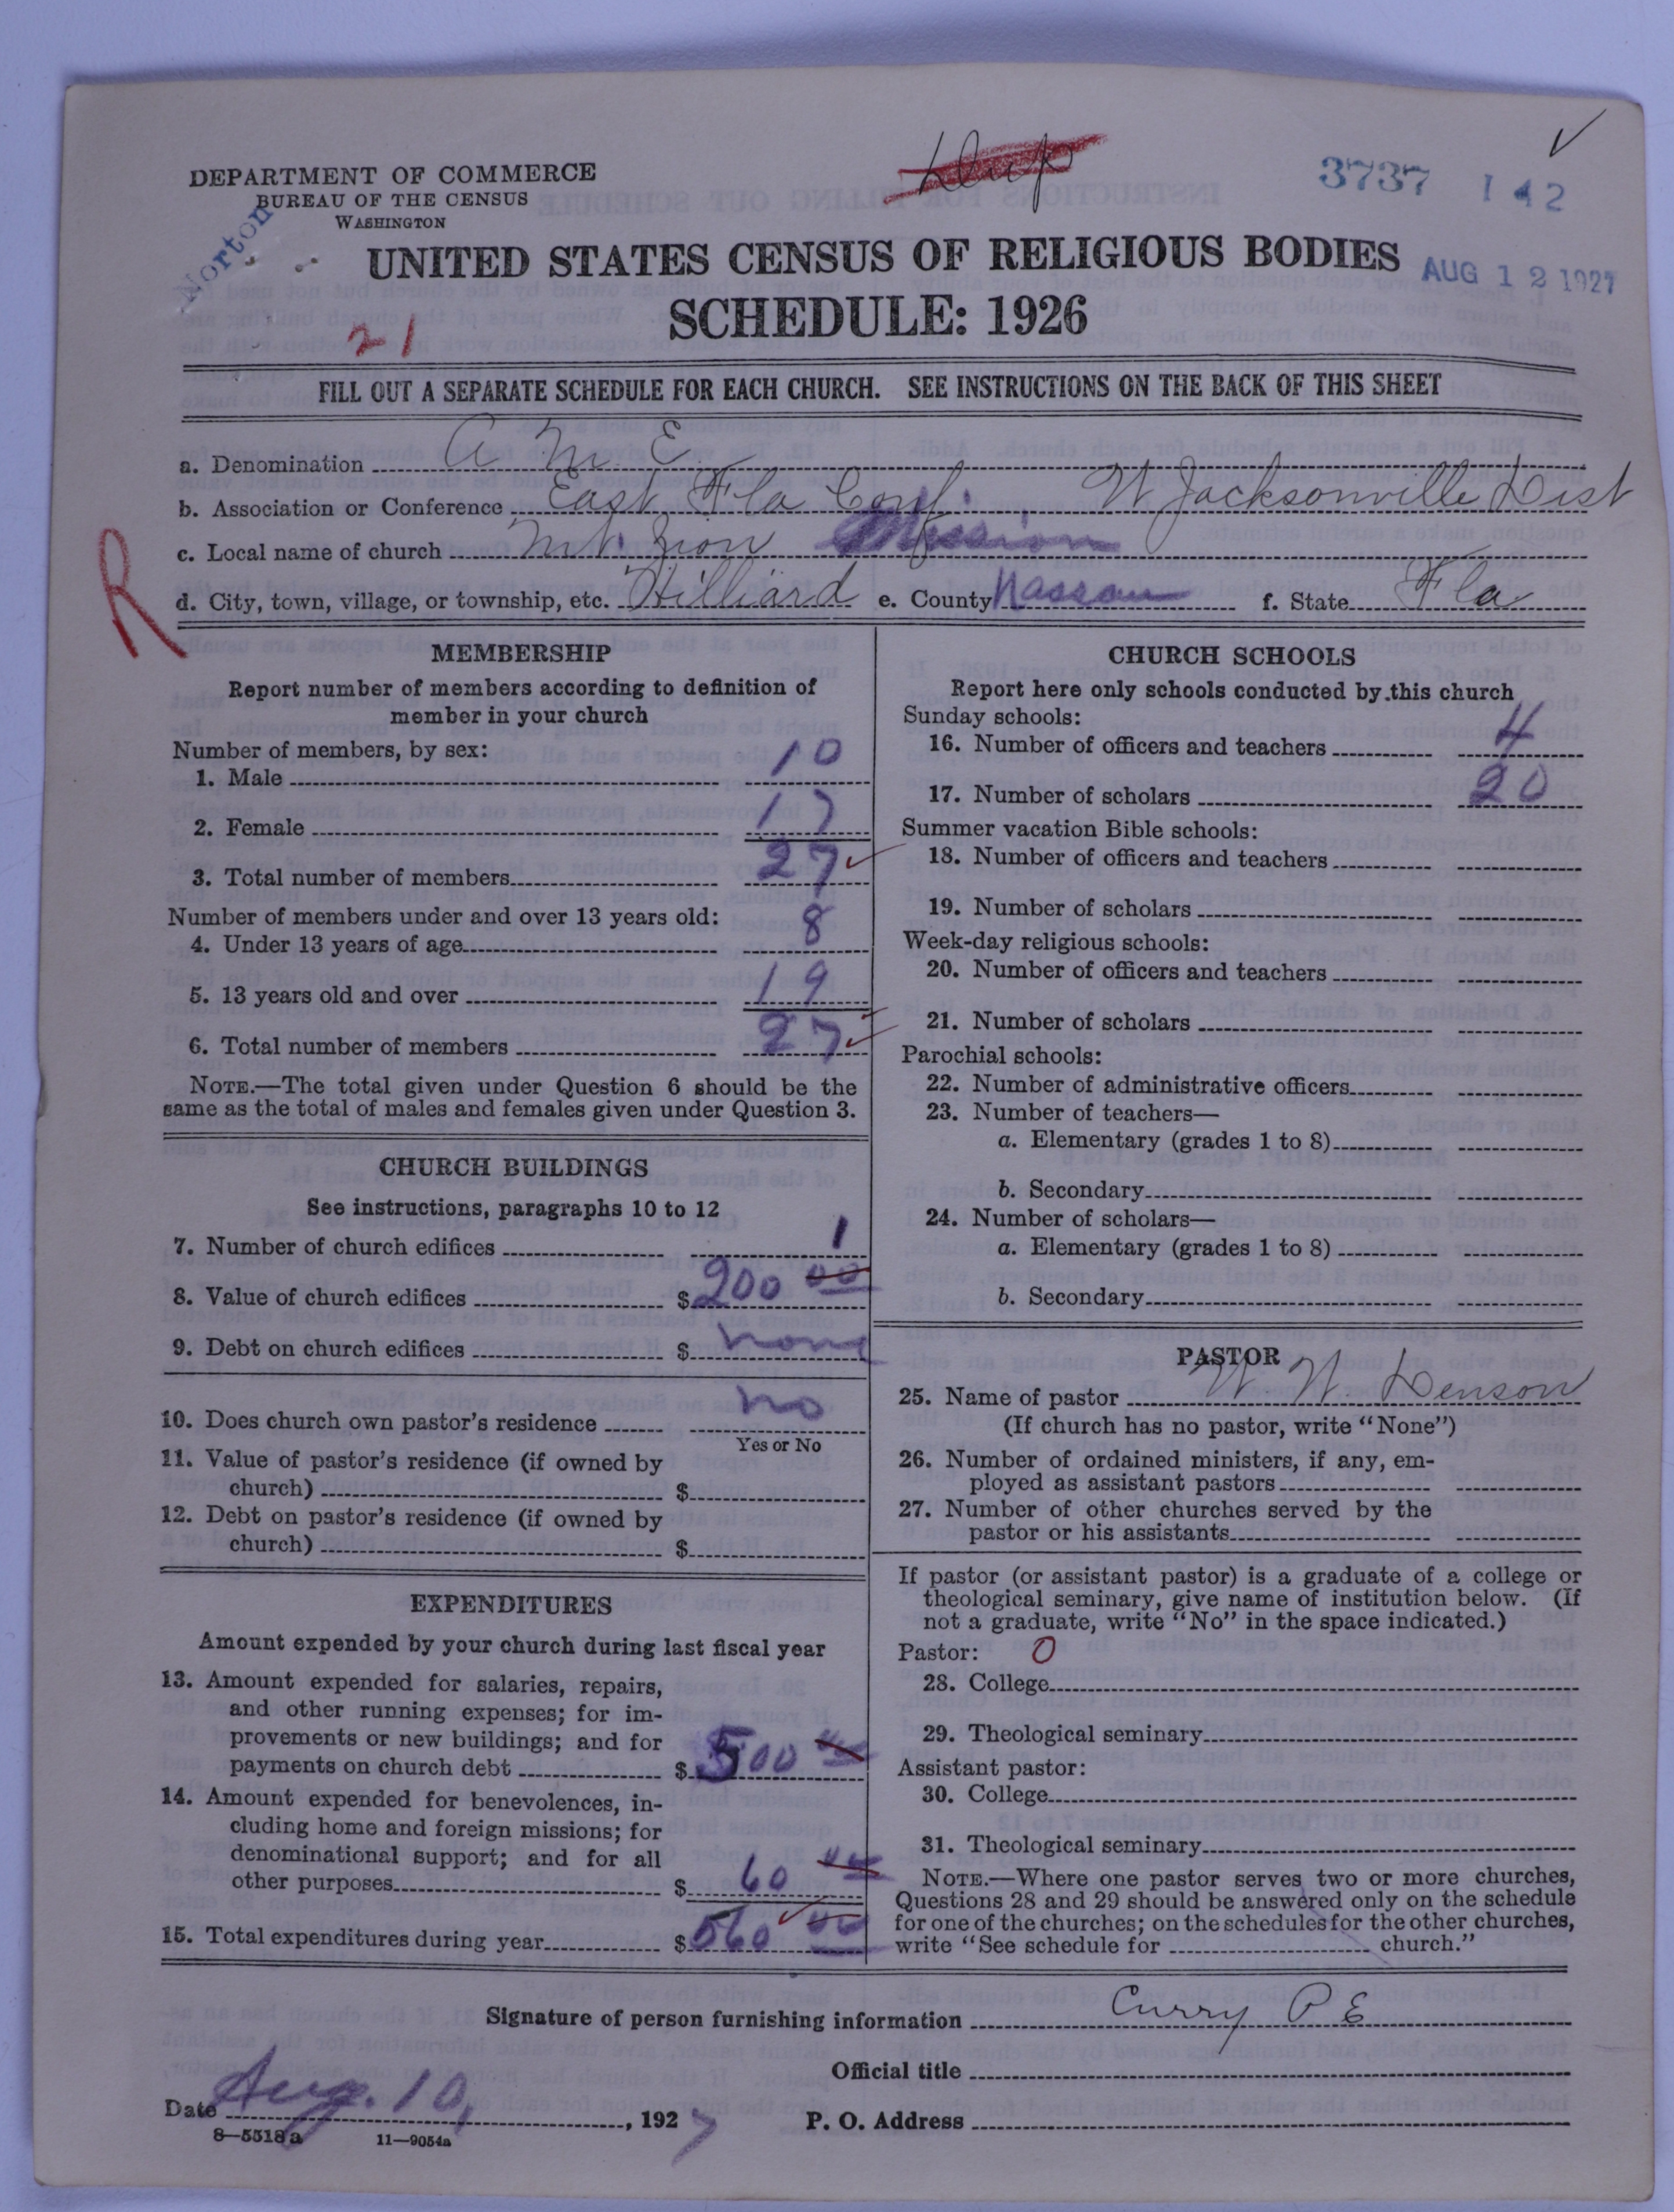 Dup
3737 142
DEPARTMENT OF COMMERCE
BUREAU OF THE CENSUS
WASHINGTON
Norton
UNITED STATES CENSUS OF RELIGIOUS BODIES
AUG 12 1927
SCHEDULE: 1926
21
FILL OUT A SEPARATE SCHEDULE FOR EACH CHURCH. SEE INSTRUCTIONS ON THE BACK OF THIS SHEET
a. Denomination A M E
b. Association or Conference East Fla Conf. W Jacksonville Dist
c. Local name of church Mt. Zion Mission
R
d. City, town, village, or township, etc. Hilliard e. County Nassau f. State Fla
MEMBERSHIP
Report number of members according to definition of
member in your church
Number of members, by sex:
1. Male 10
2. Female 17
3. Total number of members 27
Number of members under and over 13 years old:
4. Under 13 years of age 8
5. 13 years old and over 19
6. Total number of members 27
NOTE.—The total given under Question 6 should be the
same as the total of males and females given under Question 3.
CHURCH BUILDINGS
See instructions, paragraphs 10 to 12
7. Number of church edifices 1
8. Value of church edifices $200 00
9. Debt on church edifices $ none
10. Does church own pastor's residence no
Yes or No
11. Value of pastor's residence (if owned by
church) $
12. Debt on pastor's residence (if owned by
church) $
EXPENDITURES
Amount expended by your church during last fiscal year
13. Amount expended for salaries, repairs,
and other running expenses; for im-
provements or new buildings; and for
payments on church debt $500 00
14. Amount expended for benevolences, in-
cluding home and foreign missions; for
denominational support; and for all
other purposes $60 00
15. Total expenditures during year $560 00
CHURCH SCHOOLS
Report here only schools conducted by this church
Sunday schools:
16. Number of officers and teachers 4
17. Number of scholars 20
Summer vacation Bible schools:
18. Number of officers and teachers
19. Number of scholars
Week-day religious schools:
20. Number of officers and teachers
21. Number of scholars
Parochial schools:
22. Number of administrative officers
23. Number of teachers—
a. Elementary (grades 1 to 8)
b. Secondary
24. Number of scholars—
a. Elementary (grades 1 to 8)
b. Secondary
PASTOR
25. Name of pastor W W Denson
(If church has no pastor, write "None")
26. Number of ordained ministers, if any, em-
ployed as assistant pastors
27. Number of other churches served by the
pastor or his assistants
If pastor (or assistant pastor) is a graduate of a college or
theological seminary, give name of institution below. (If
not a graduate, write "No" in the space indicated.)
Pastor: 0
28. College
29. Theological seminary
Assistant pastor:
30. College
31. Theological seminary
NOTE.—Where one pastor serves two or more churches,
Questions 28 and 29 should be answered only on the schedule
for one of the churches; on the schedules for the other churches,
write "See schedule for church."
Signature of person furnishing information Curry P E
Official title
Date Aug. 10, 1927 P. O. Address
8—5518 a 11—9054a